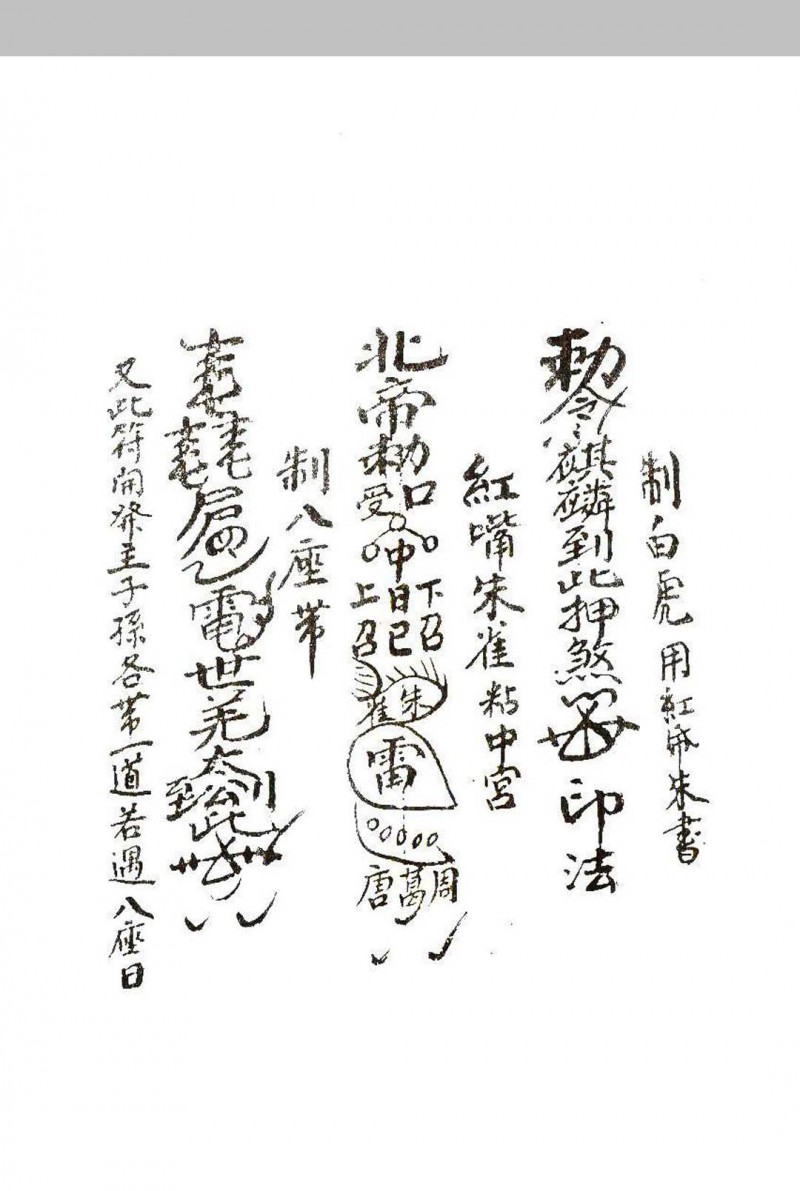 制白虎 用紅帋朱書
勅令麒麟到此押煞 印法
紅嘴朱雀粘中宮
北帝勅口受中日已上召下召朱雀雷唐葛周
制八座带
電世 到此
又此符開發主子孫各带一道若遇八座日